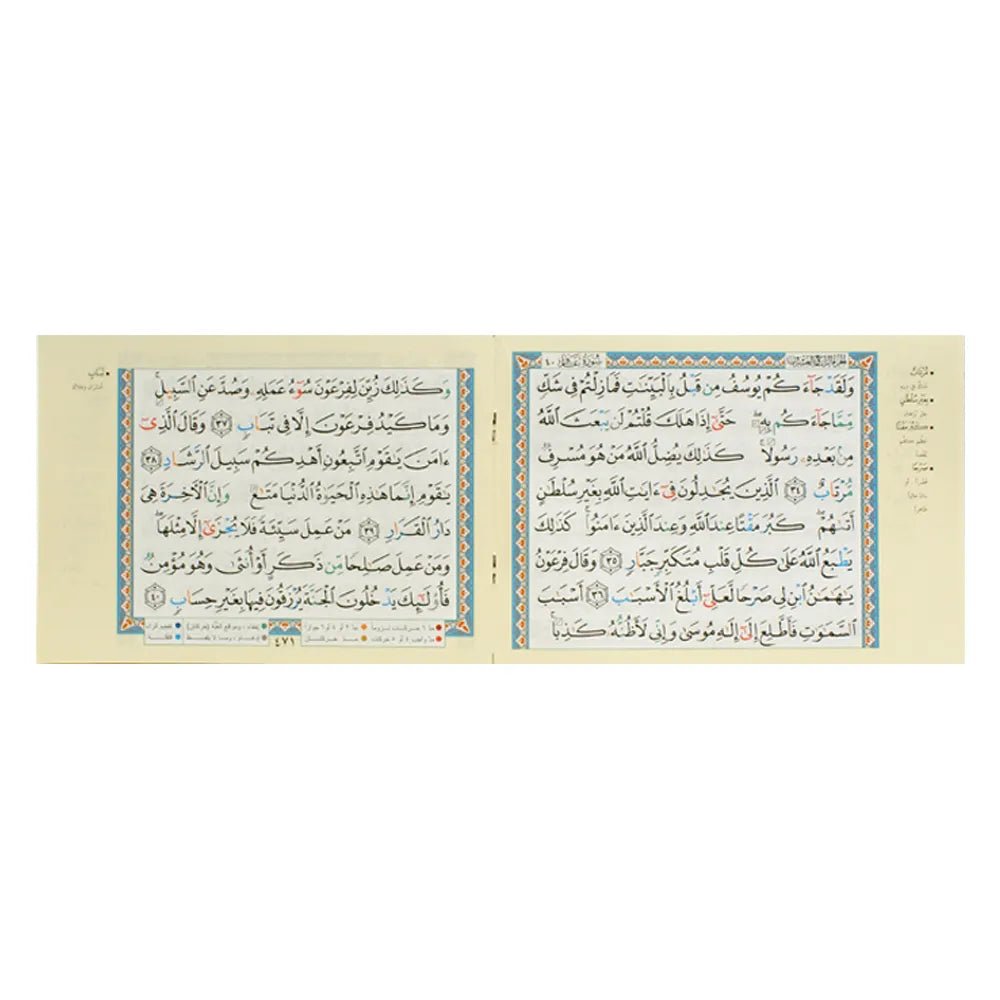 سورة غافر ٤٠
وَلَقَدْ جَآءَكُمْ يُوسُفُ مِن قَبْلُ بِٱلْبَيِّنَـٰتِ فَمَا زِلْتُمْ فِى شَكٍّ
مِّمَّا جَآءَكُم بِهِۦ ۖ حَتَّىٰٓ إِذَا هَلَكَ قُلْتُمْ لَن يَبْعَثَ ٱللَّهُ
مِنۢ بَعْدِهِۦ رَسُولًا ۚ كَذَٰلِكَ يُضِلُّ ٱللَّهُ مَنْ هُوَ مُسْرِفٌ
مُّرْتَابٌ ٣٤ ٱلَّذِينَ يُجَـٰدِلُونَ فِىٓ ءَايَـٰتِ ٱللَّهِ بِغَيْرِ سُلْطَـٰنٍ
أَتَىٰهُمْ ۖ كَبُرَ مَقْتًا عِندَ ٱللَّهِ وَعِندَ ٱلَّذِينَ ءَامَنُوا۟ ۚ كَذَٰلِكَ
يَطْبَعُ ٱللَّهُ عَلَىٰ كُلِّ قَلْبِ مُتَكَبِّرٍ جَبَّارٍ ٣٥ وَقَالَ فِرْعَوْنُ
يَـٰهَـٰمَـٰنُ ٱبْنِ لِى صَرْحًا لَّعَلِّىٓ أَبْلُغُ ٱلْأَسْبَـٰبَ ٣٦ أَسْبَـٰبَ
ٱلسَّمَـٰوَٰتِ فَأَطَّلِعَ إِلَىٰٓ إِلَـٰهِ مُوسَىٰ وَإِنِّى لَأَظُنُّهُۥ كَـٰذِبًا ۚ
مُرْتَابٌ
بِغَيْرِ سُلْطَـٰنٍ
كَبُرَ مَقْتًا
صَرْحًا
وَكَذَٰلِكَ زُيِّنَ لِفِرْعَوْنَ سُوٓءُ عَمَلِهِۦ وَصُدَّ عَنِ ٱلسَّبِيلِ ۚ
وَمَا كَيْدُ فِرْعَوْنَ إِلَّا فِى تَبَابٍ ٣٧ وَقَالَ ٱلَّذِىٓ
ءَامَنَ يَـٰقَوْمِ ٱتَّبِعُونِ أَهْدِكُمْ سَبِيلَ ٱلرَّشَادِ ٣٨
يَـٰقَوْمِ إِنَّمَا هَـٰذِهِ ٱلْحَيَوٰةُ ٱلدُّنْيَا مَتَـٰعٌ وَإِنَّ ٱلْـَٔاخِرَةَ هِىَ
دَارُ ٱلْقَرَارِ ٣٩ مَنْ عَمِلَ سَيِّئَةً فَلَا يُجْزَىٰٓ إِلَّا مِثْلَهَا ۖ
وَمَنْ عَمِلَ صَـٰلِحًا مِّن ذَكَرٍ أَوْ أُنثَىٰ وَهُوَ مُؤْمِنٌ
فَأُو۟لَـٰٓئِكَ يَدْخُلُونَ ٱلْجَنَّةَ يُرْزَقُونَ فِيهَا بِغَيْرِ حِسَابٍ ٤٠
تَبَابٍ
٤٧١